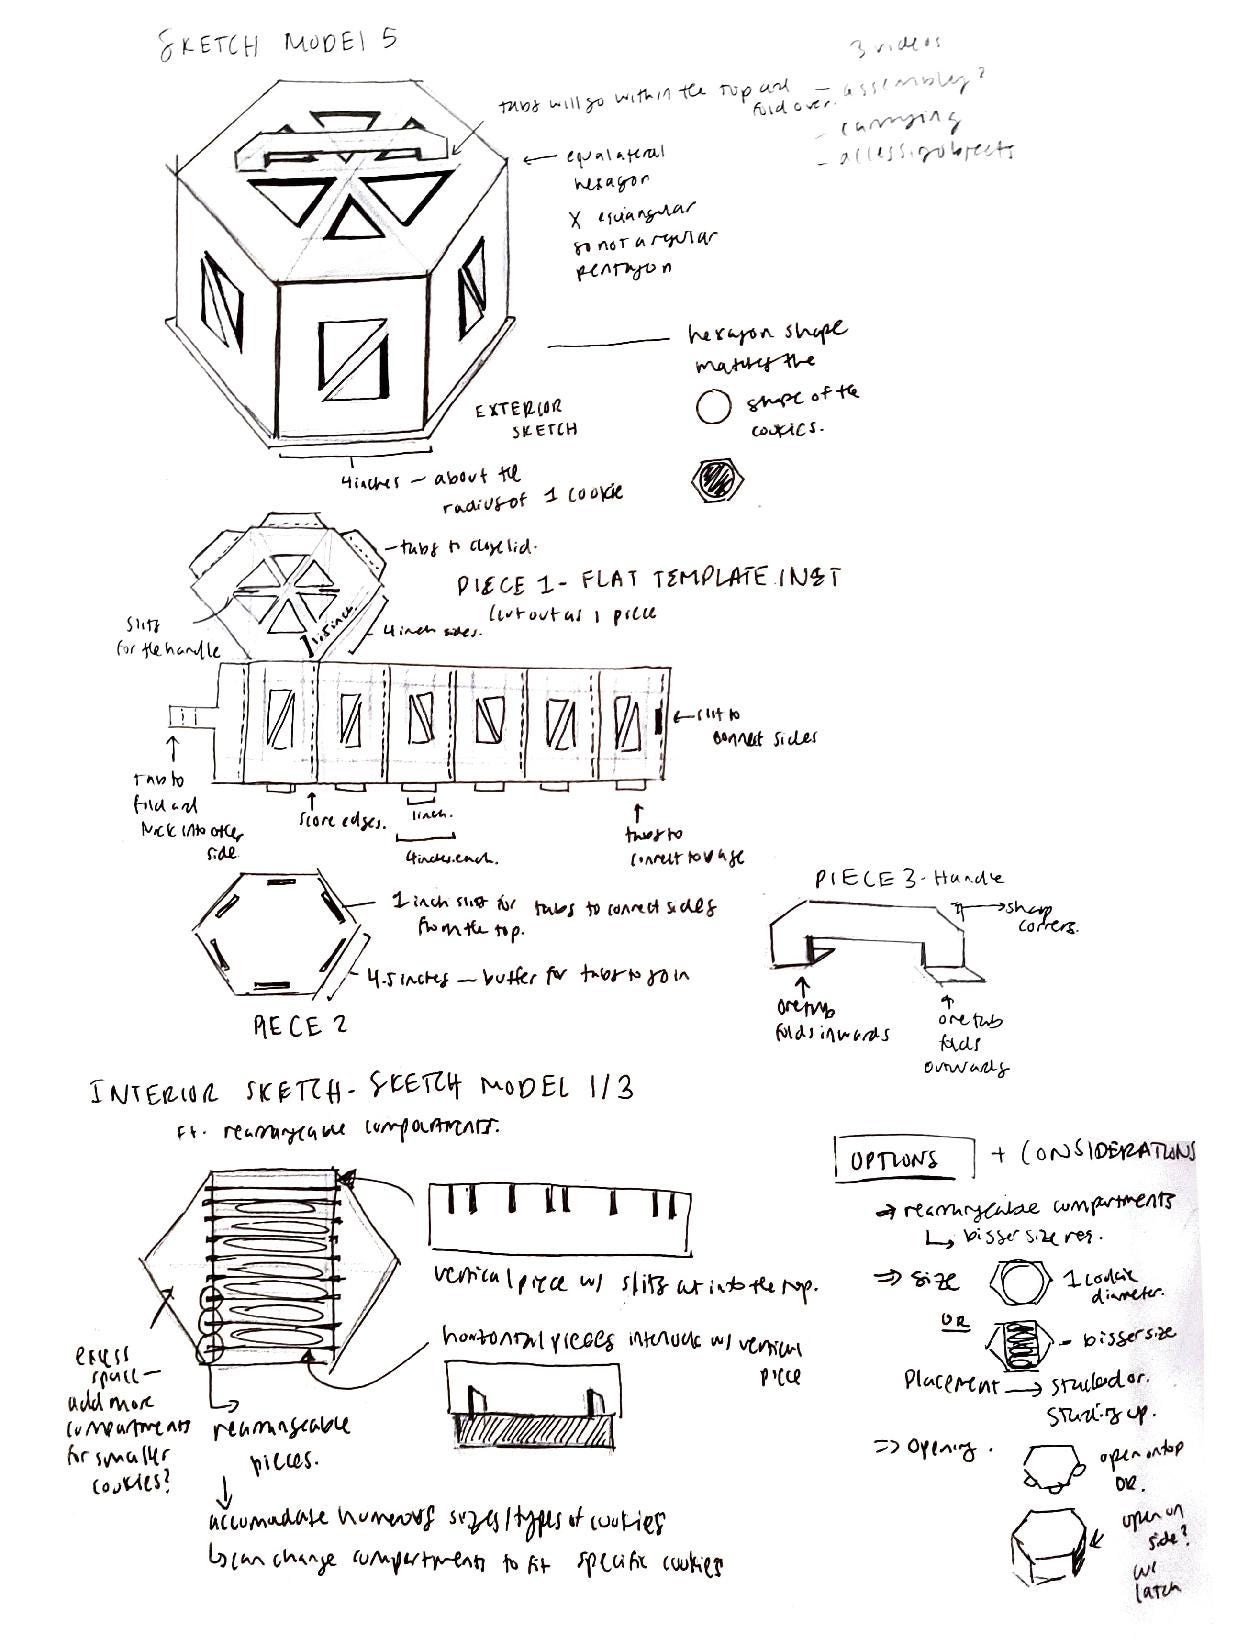 SKETCH MODEL 5
3 videos
- assembly?
- carrying
- accessing objects
tabs will go within the top and
fold over.
equalateral
hexagon
X equiangular
so not a regular
pentagon
hexagon shape
matches the
shape of the
cookies.
EXTERIOR
SKETCH
4 inches - about the
radius of 1 cookie
tabs to close lid.
PIECE 1 - FLAT TEMPLATE INST
cut out as 1 piece
slits
for the handle
1.5 inch
4 inch sides.
slit to
connect sides
tabs to
fold and
tuck into other
side
score edges.
1 inch.
4 inches each.
tabs to
connect to base
1 inch slits for tabs to connect sides
from the top.
4.5 inches - buffer for tabs to go in
PIECE 2
PIECE 3 - Handle
sharp
corners.
one tab
folds inwards
one tab
folds
outwards
INTERIOR SKETCH - SKETCH MODEL 1/3
Ft. rearrangeable compartments.
vertical piece w/ slits cut into the top.
horizontal pieces interlock w/ vertical
piece
excess
space -
add more
compartments
for smaller
cookies?
rearrangeable
pieces.
accomadate numerous sizes/types of cookies
can change compartments to fit specific cookies
OPTIONS + CONSIDERATIONS
rearrangeable compartments
bigger size req.
size
1 cookie
diameter.
OR
- bigger size
Placement → stacked or
standing up.
Opening.
open on top
OR.
open on
side?
w/
latch